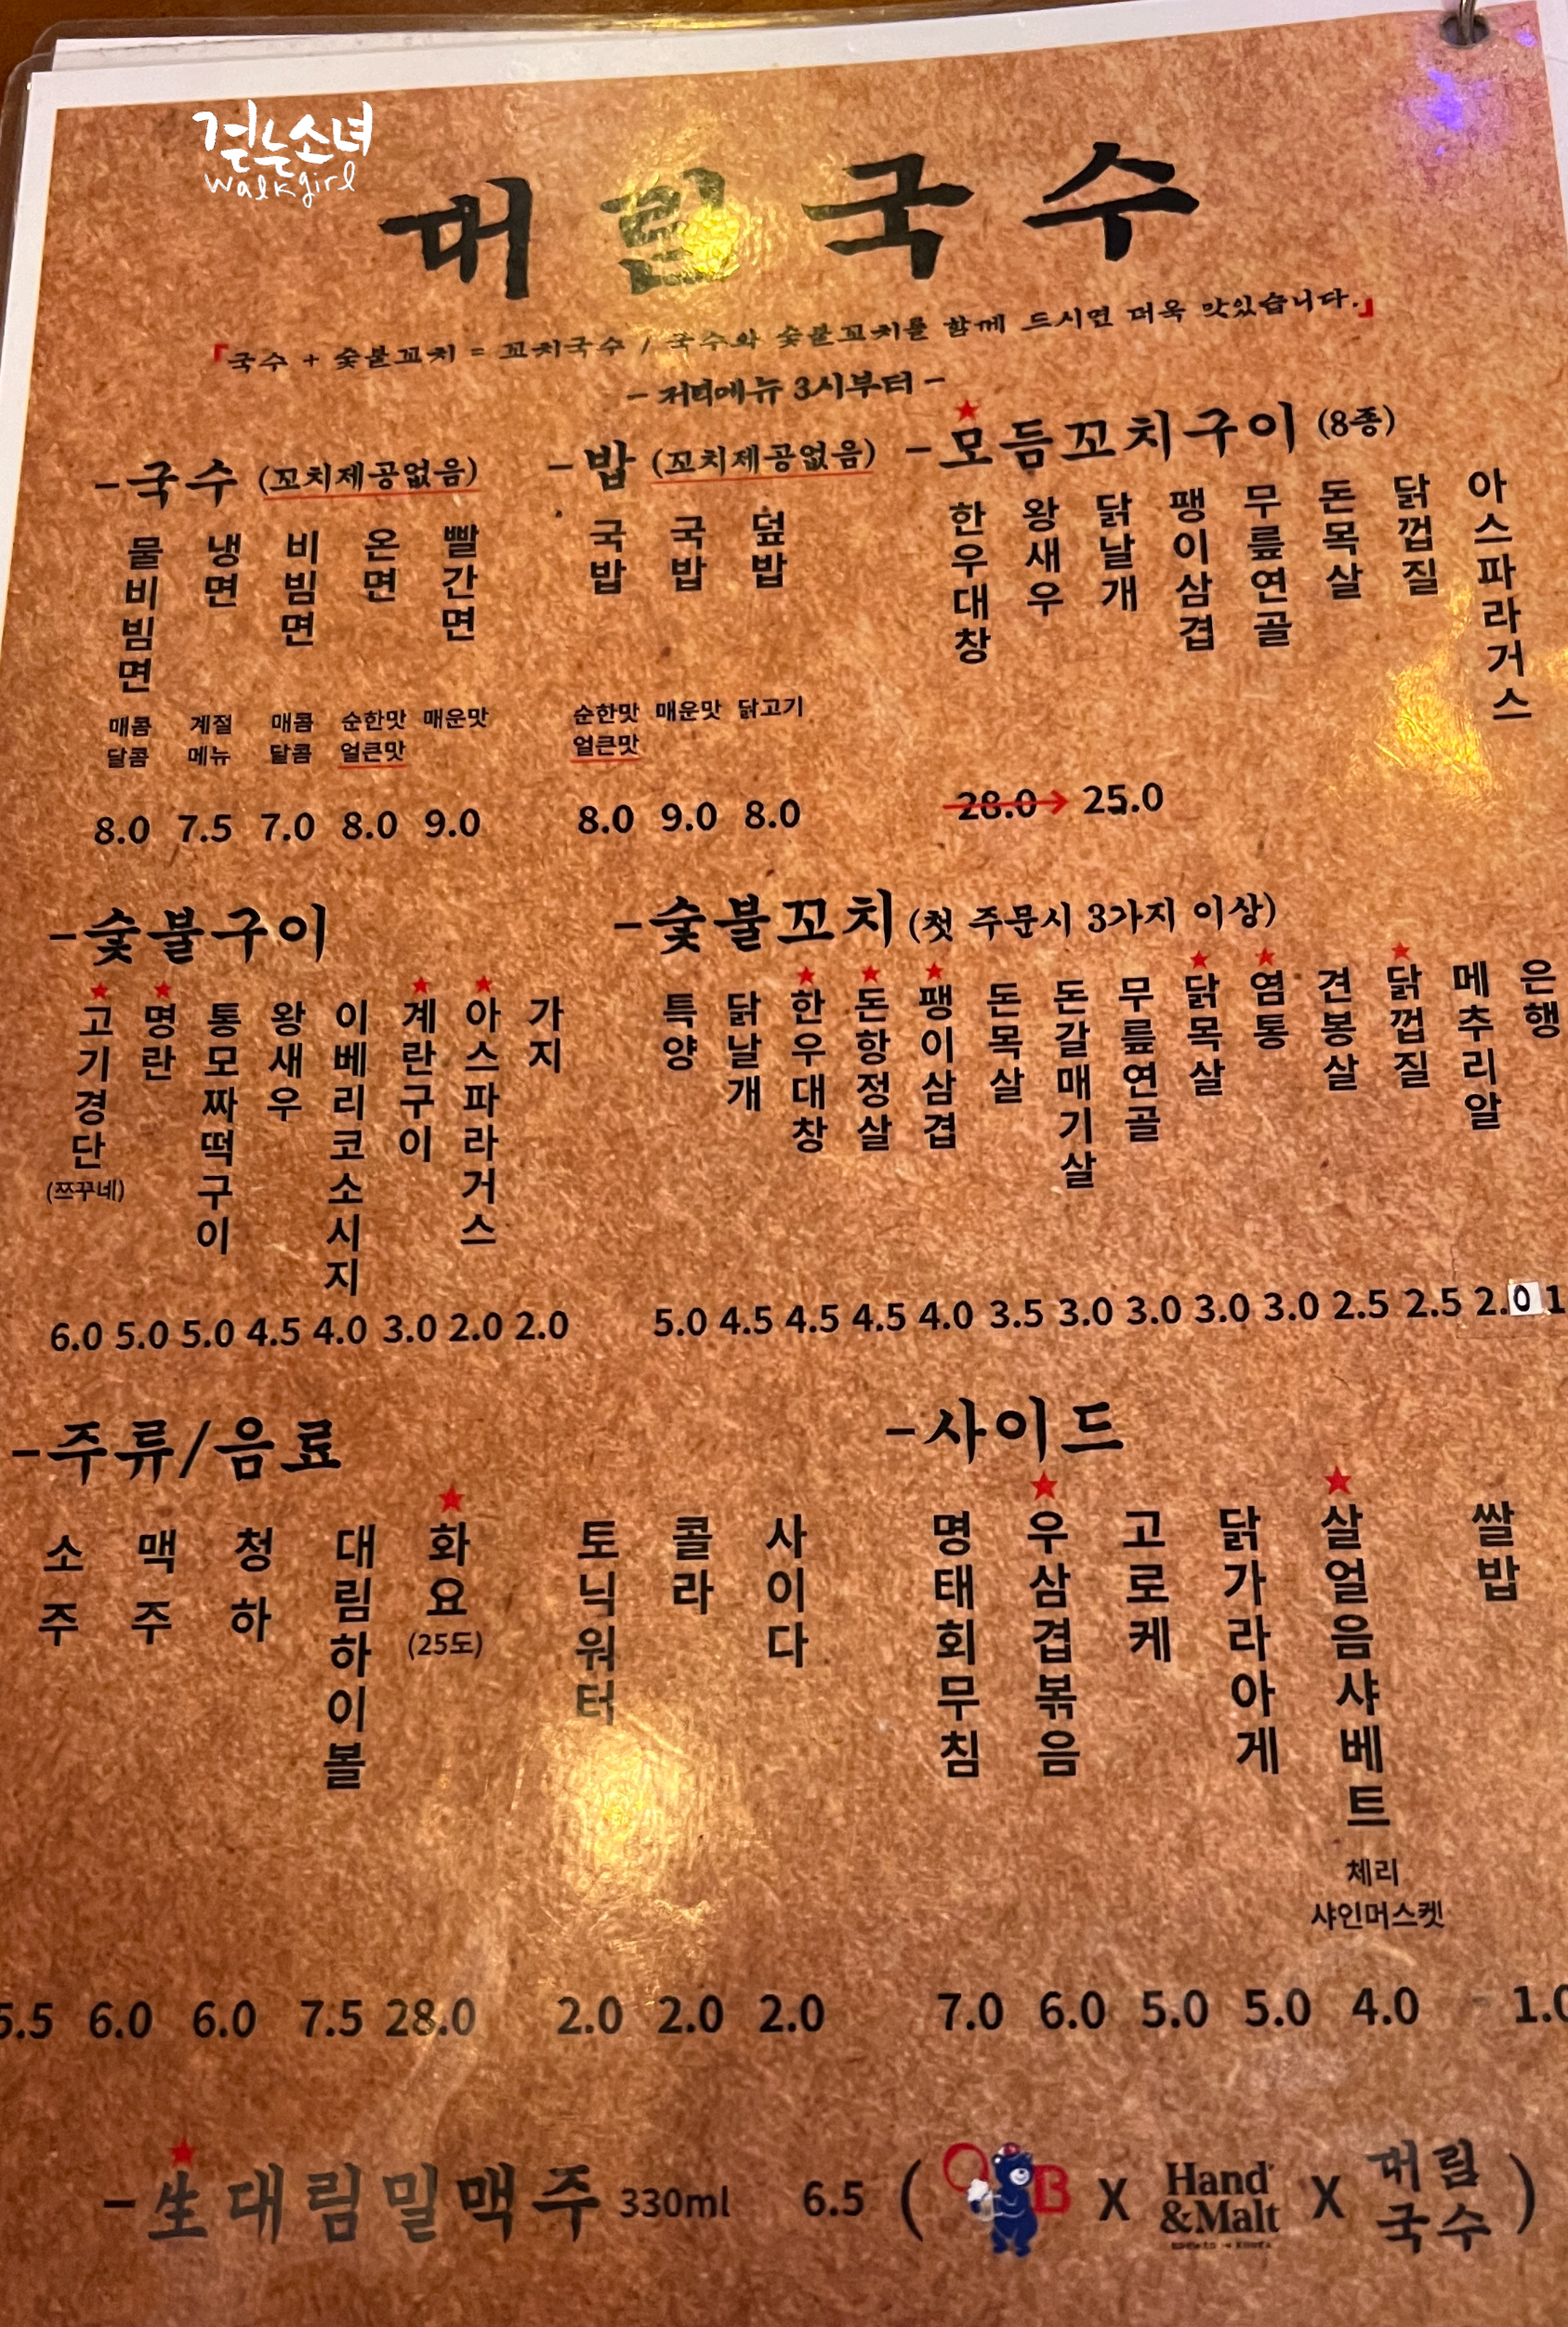 걷는소녀
walkgirl
대림국수
「국수 + 숯불꼬치 = 꼬치국수 / 국수와 숯불꼬치를 함께 드시면 더욱 맛있습니다.」
- 저녁메뉴 3시부터 -
-국수 (꼬치제공없음)
물비빔면 냉면 비빔면 온면 빨간면
매콤 계절 매콤 순한맛 매운맛
달콤 메뉴 달콤 얼큰맛
8.0 7.5 7.0 8.0 9.0
-밥 (꼬치제공없음)
국밥 국밥 덮밥
순한맛 매운맛 닭고기
얼큰맛
8.0 9.0 8.0
-모듬꼬치구이 (8종)
한우대창 왕새우 닭날개 팽이삼겹 무릎연골 돈목살 닭껍질 아스파라거스
28.0→ 25.0
-숯불구이
고기경단 명란 통모짜떡구이 왕새우 이베리코소시지 계란구이 아스파라거스 가지
(쯔꾸네)
6.0 5.0 5.0 4.5 4.0 3.0 2.0 2.0
-숯불꼬치 (첫 주문시 3가지 이상)
특양 닭날개 한우대창 돈항정살 팽이삼겹 돈목살 돈갈매기살 무릎연골 닭목살 염통 견봉살 닭껍질 메추리알 은행
5.0 4.5 4.5 4.5 4.0 3.5 3.0 3.0 3.0 3.0 2.5 2.5 2.0 1
-주류/음료
소주 맥주 청하 대림하이볼 화요 토닉워터 콜라 사이다
(25도)
5.5 6.0 6.0 7.5 28.0 2.0 2.0 2.0
-사이드
명태회무침 우삼겹볶음 고로케 닭가라아게 살얼음샤베트 쌀밥
체리
샤인머스켓
7.0 6.0 5.0 5.0 4.0 1.0
-生대림밀맥주 330ml 6.5 ( OB X Hand &Malt X 대림국수 )